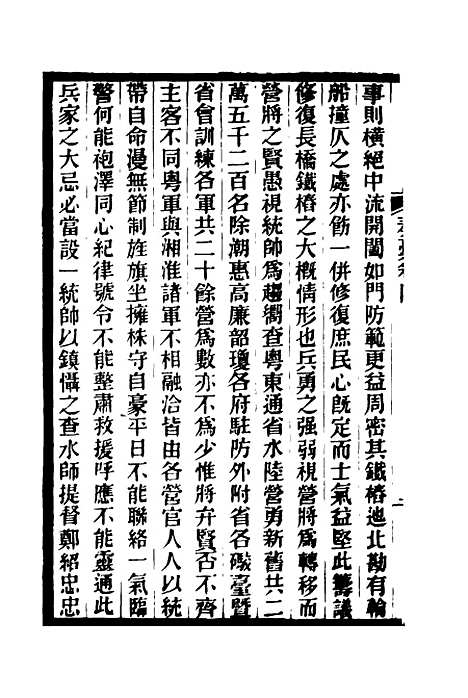 事則橫絕中流開闔如門防範更益周密其鐵樁迤北勘有輪
船撞仄之處亦飭一併修復庶民心既定而士氣益堅此籌議
修復長橋鐵樁之大概情形也兵勇之强弱視營將為轉移而
營將之賢愚視統帥為趨嚮查粵東通省水陸營勇新舊共二
萬五千二百名除潮惠高廉韶瓊各府駐防外附省各礮臺暨
省會訓練各軍共二十餘營為數亦不為少惟將弁賢否不齊
主客不同粵軍與湘淮諸軍不相融洽皆由各營官人人以統
帶自命漫無節制旌旗坐擁株守自豪平日不能聯絡一氣臨
警何能袍澤同心紀律號令不能整肅救援呼應不能靈通此
兵家之大忌必當設一統帥以鎮懾之查水師提督鄭紹忠忠